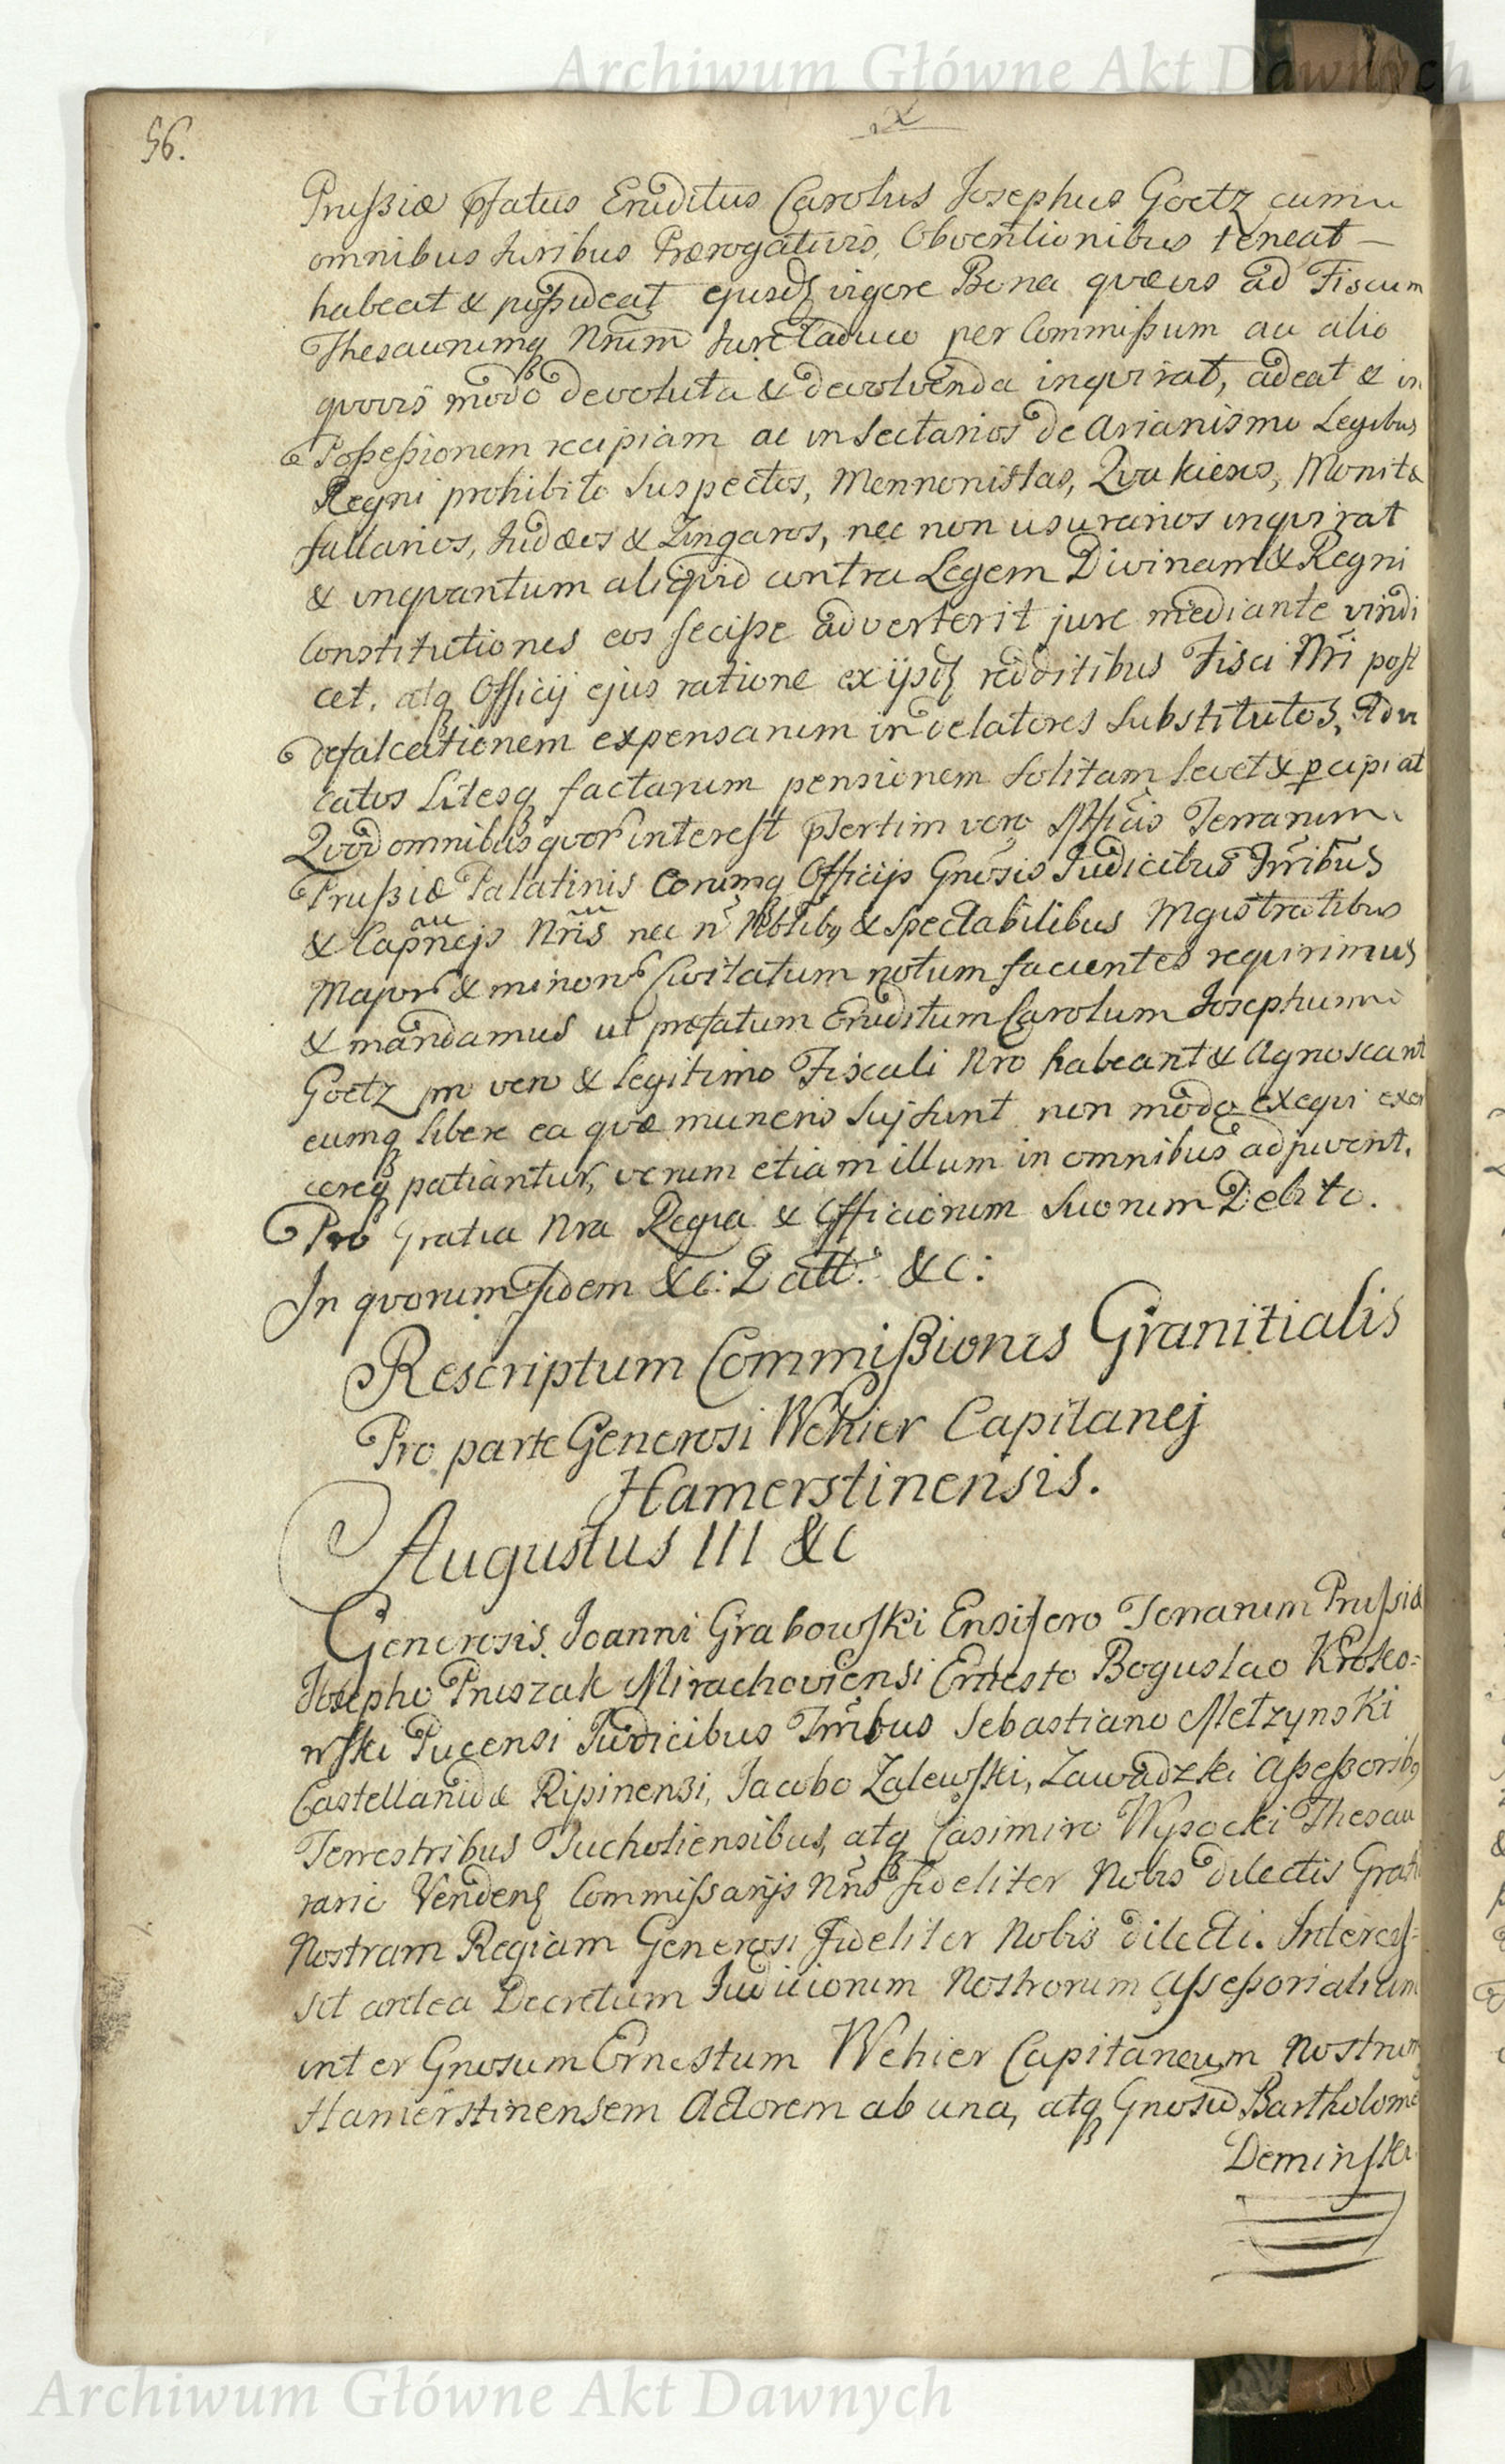 Archiwum Główne Akt Dawnych
56.
Prußiæ pfatus Eruditus Carolus Josephus Goetz cum
omnibus Juribus Prærogativis, Obventionibus teneat
habeat & poßideat ejusdq vigore Bona quævis ad Fiscum
Thesaurumq Nrum Jure Caduco per Commißum au alio
quovis modo devoluta & devolvenda inquirat, adeat & in
Poßeßionem recipiam ac in Sectarios de Arianismo Legibus
Regni prohibito Suspectos, Mennonistas, Quakieros, Moneta
fallarios, Judæos & Zingaros, nec non usurarios inquirat
& inquantum aliquid contra Legem Divinam & Regni
Constitutiones eos feciße adverterit jure mediante vindi
cet, atq Officij ejus ratione ex ijsdq redditibus Fisci Nri post
defalcationem expensarum in delatores Substitutos, Advo
catos Litesq factarum pensionem Solitam levet & pcipiat
Quod omnibus quor interest pSertim vero Mficis Terrarum
Prußiæ Palatinis eorumq Officijs Gnosis Judicibus Trribus
& Capneis Nris nec n Nobilibq & Spectabilibus Mgistratibus
Major & minor Civitatum notum facientes requirimus
& mandamus ut præfatum Eruditum Carolum Josephum
Goetz pro vero & legitimo Fiscali Nro habeant & Agnoscant
eumq libere ea quæ muneris Suj Sunt non modo exequi exer
cereq patiantur, verum etiam illum in omnibus adjuvent.
Pro Gratia Nra Regia & Officiorum Suorum Debito.
In quorum fidem &c: Datt: &c:
Rescriptum Commißionis Granitialis
Pro parte Generosi Wehier Capitanej
Hamerstinensis.
Augustus III &c
Generosis Joanni Grabowski Ensifero Terrarum Prußiæ
Josepho Pruszak Mirachoviensi Ernesto Boguslao Kroko=
wski Pucensi Judicibus Trribus Sebastiano Mełzynski
Castellanidæ Ripinensi, Jacobo Zalewski, Zawadzki Aßeßoribq
Terrestribus Tucholiensibus, atq Casimiro Wysocki Thesau
rario Venden Commissarijs Nris fideliter Nobis dilectis Grati
Nostram Regiam Generosi fideliter Nobis dilecti. Interces=
sit antea Decretum Judiciorum Nostrorum Assessorialium
inter Gnosum Ernestum Wehier Capitaneum Nostrum
Hamerstinensem Actorem ab una, atq Gnosu Bartholome
Deminski
Archiwum Główne Akt Dawnych